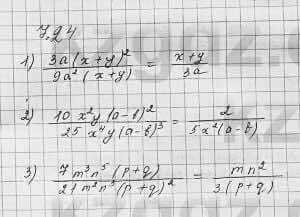 7.24
1) \frac{3a(x+y)^2}{9a^2(x+y)} = \frac{x+y}{3a}
2) \frac{10x^2y(a-b)^2}{25x^4y(a-b)^3} = \frac{2}{5x^2(a-b)}
3) \frac{7m^3n^5(p+q)}{21m^2n^3(p+q)^2} = \frac{mn^2}{3(p+q)}